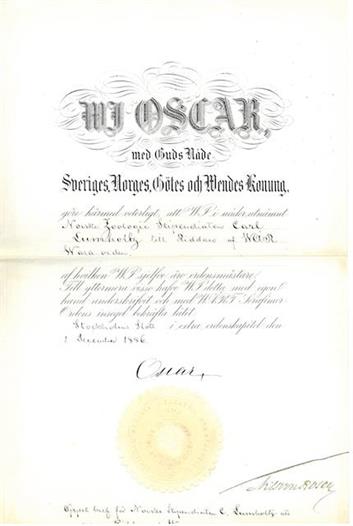 WJ OSCAR,
med Guds Nåde
Sveriges, Norges, Götes och Wendes Konung,
göre härmed veterligt, att WJ i nåder utnämnt
Norske Zoologie Stipendiaten Carl
Lumholtz till Riddare af WÅR
Wasa orden
af hvilken WJ sjelfve äro ordensmästare;
Till yttermera visso hafve WJ detta med egen
hand underskrifvit och med WÅRT Serafimer
Ordens insegel bekräfta låtit
Stockholms Slott i extra ordenskapitel den
1 December 1886
Oscar,
Öppet bref för Norske Stipendiaten C. Lumholtz att